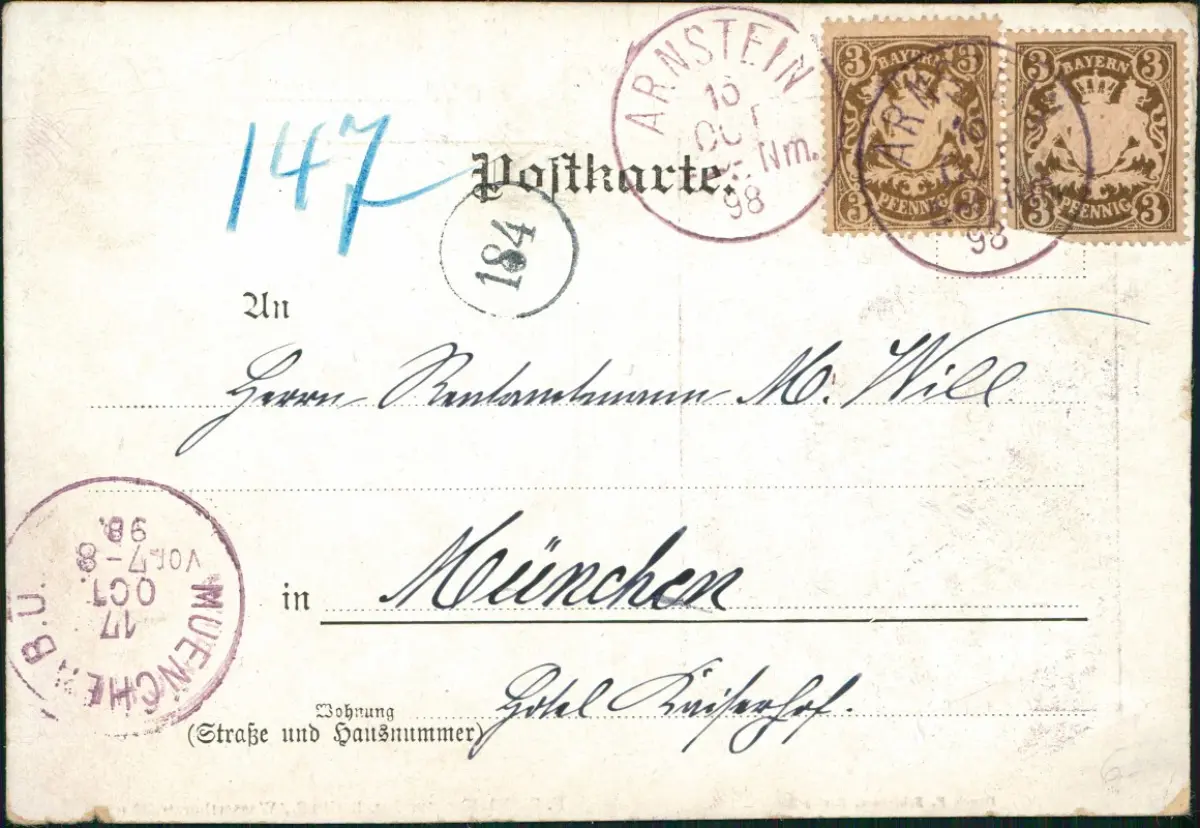 147
Postkarte.
184
ARNSTEIN
16
OCT
Nm.
98
3 BAYERN 3
3 PFENNIG 3
3 BAYERN 3
3 PFENNIG 3
ARNS
16
98
An
Herrn Rentamtmann M. Will
in München
Wohnung
(Straße und Hausnummer)
Hotel Kaiserhof.
MUENCHEN B.U.
17
OCT.
VOR.7-8
98.
6